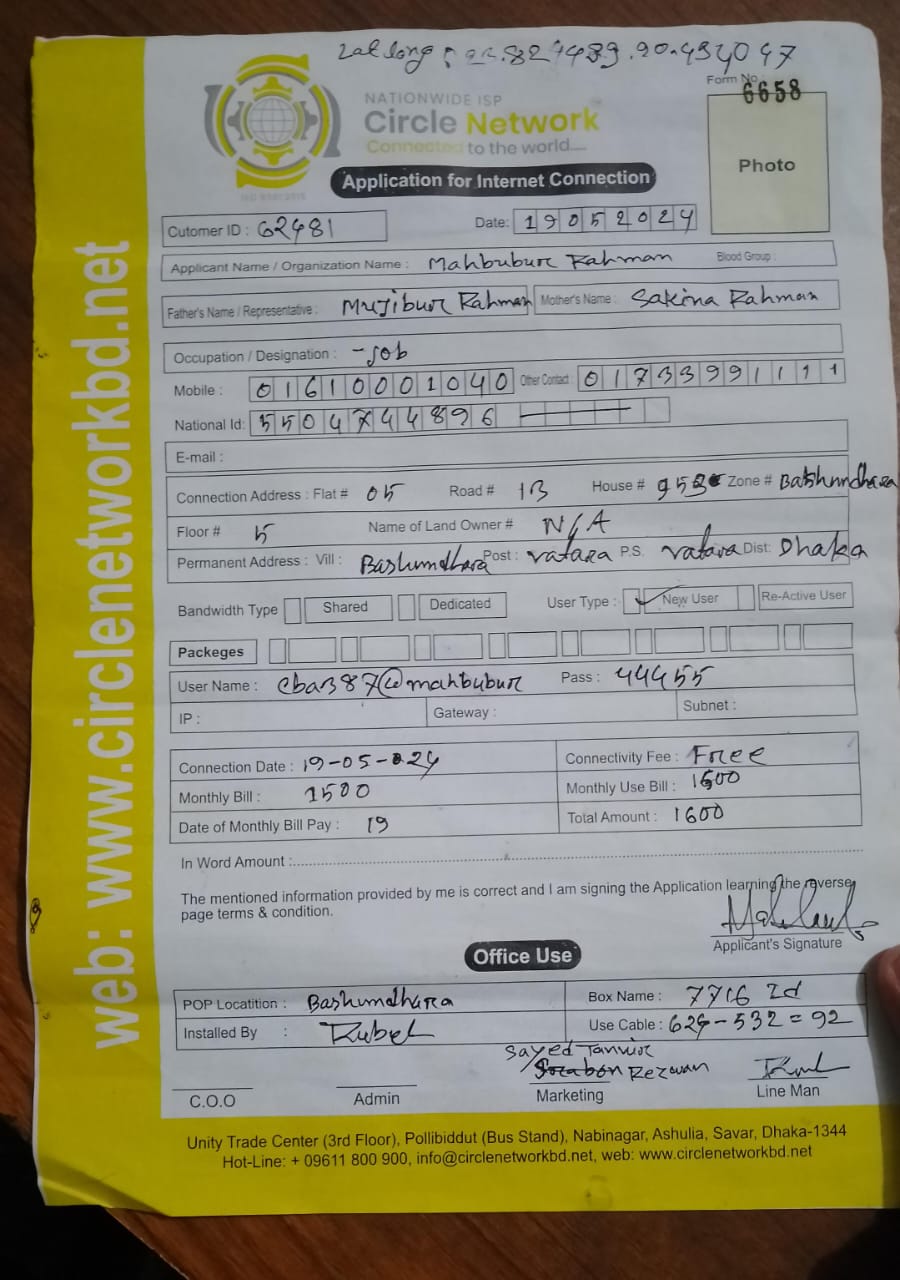 Lat long : 23.827489.90.434047
Form No.
6658
NATIONWIDE ISP
Circle Network
Connected to the world....
Photo
Application for Internet Connection
Cutomer ID : 62481
Date: 19052024
Applicant Name / Organization Name : Mahbubur Rahman Blood Group :
Father's Name / Representative : Mujibur Rahman Mother's Name : Sakina Rahman
Occupation / Designation : - Job
Mobile : 01610001040 Other Contact : 01733991111
National Id: 5504744896
E-mail :
Connection Address : Flat # 05 Road # 13 House # 953 Zone # Bashundhara
Floor # 5 Name of Land Owner # N/A
Permanent Address : Vill : Bashundhara Post : vatara P.S. vatara Dist: Dhaka
Bandwidth Type Shared Dedicated User Type : New User Re-Active User
Packeges
User Name : cbar387@mahbubur Pass : 44455
IP : Gateway : Subnet :
Connection Date : 19-05-024 Connectivity Fee : Free
Monthly Bill : 1500 Monthly Use Bill : 1600
Date of Monthly Bill Pay : 19 Total Amount : 1600
In Word Amount :
The mentioned information provided by me is correct and I am signing the Application learning the reverse
page terms & condition.
Applicant's Signature
Office Use
POP Locatition : Bashundhara Box Name : 7716 2d
Installed By : Rubel Use Cable : 624-532=92
Sayed Tanvir
Rezwan
C.O.O Admin Marketing Line Man
Unity Trade Center (3rd Floor), Pollibiddut (Bus Stand), Nabinagar, Ashulia, Savar, Dhaka-1344
Hot-Line: + 09611 800 900, info@circlenetworkbd.net, web: www.circlenetworkbd.net
web: www.circlenetworkbd.net